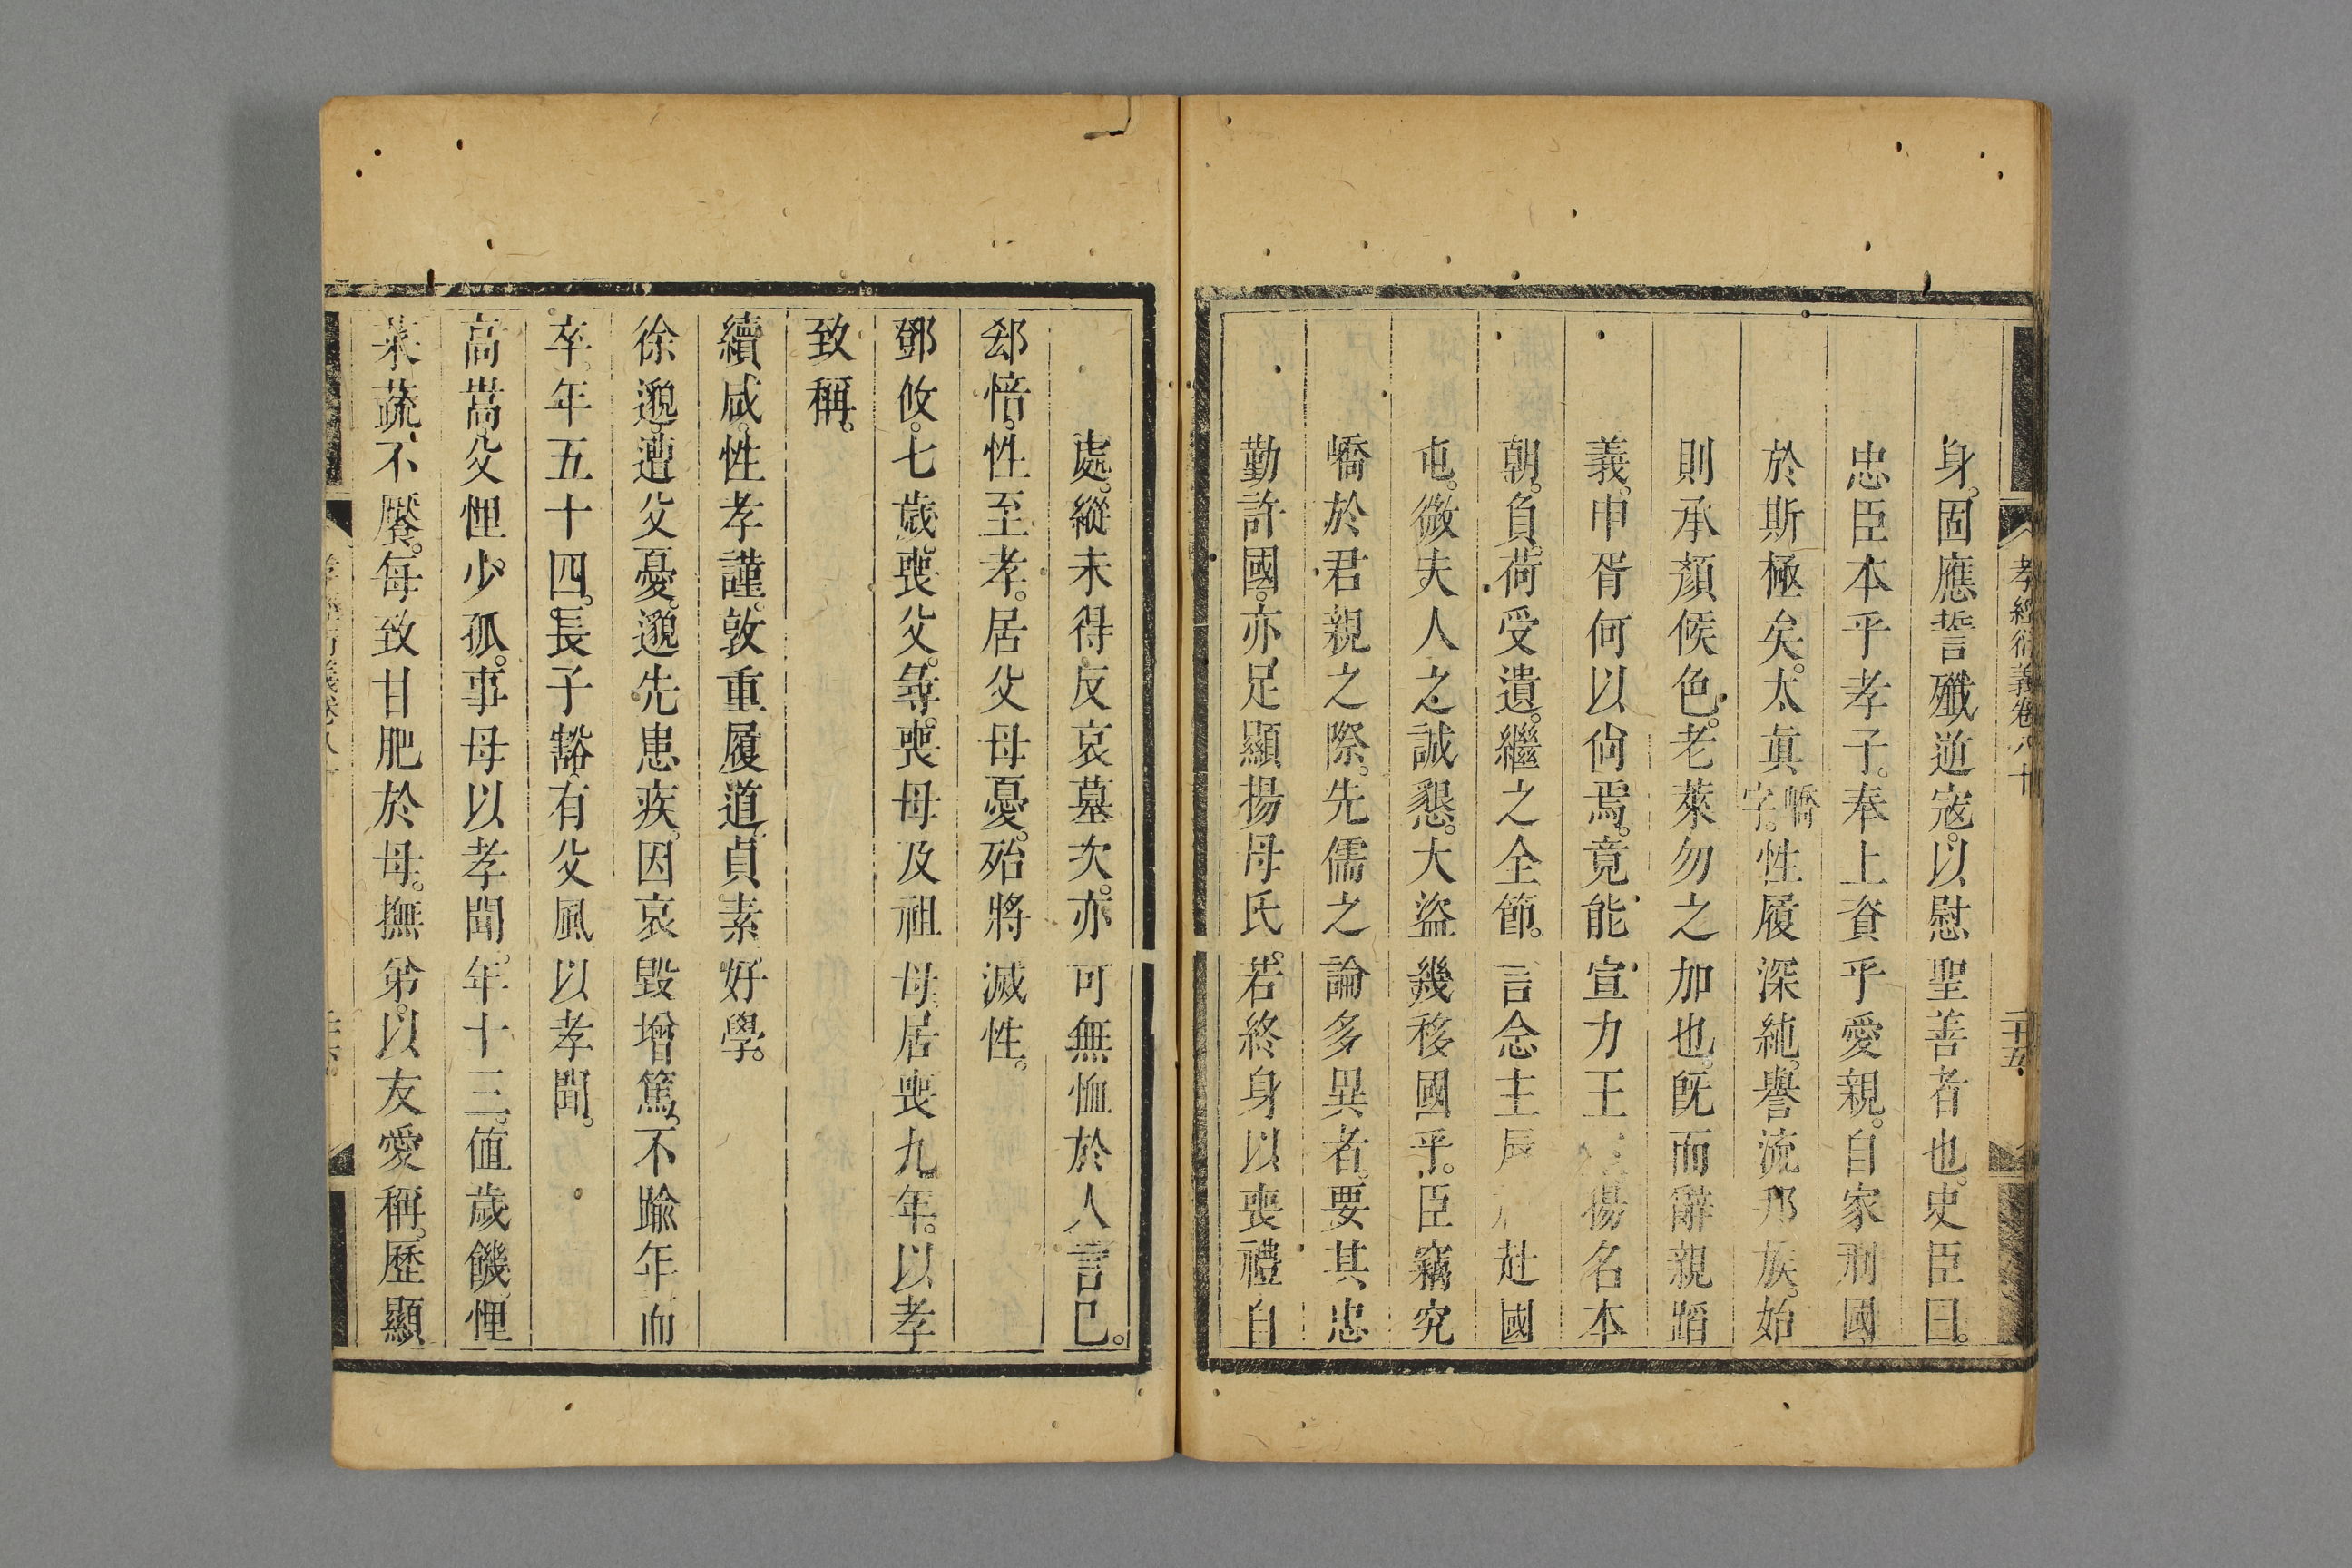 孝經衍義卷八十 二十五
身。固應誓殲逆寇。以慰聖善者也。史臣曰。
忠臣本乎孝子。奉上資乎愛親。自家刑國。
於斯極矣。太眞嶠字。性履深純。譽流邦族。始
則承顏候色。老萊勿之加也。旣而辭親蹈
義。申胥何以尙焉。竟能宣力王 揚名本
朝。負荷受遺。繼之全節。言念主辰 赴國
屯。微夫人之誠懇。大盜幾移國乎。臣竊究
嶠於君親之際。先儒之論多異者。要其忠
勤許國。亦足顯揚母氏。若終身以喪禮自
處。縱未得反哀墓次。亦可無恤於人言已。
郄愔。性至孝。居父母憂。殆將滅性。
鄧攸。七歲。喪父。尋。喪母及祖母。居喪九年。以孝
致稱。
續咸。性孝謹。敦重履道。貞素好學。
徐邈。遭父憂。邈先患疾。因哀毀增篤。不踰年而
卒。年五十四。長子豁。有父風以孝聞。
高嵩。父悝少孤。事母以孝聞。年十三。値歲饑。悝
菜蔬不饜。每致甘肥於母。撫弟。以友愛稱。歷顯